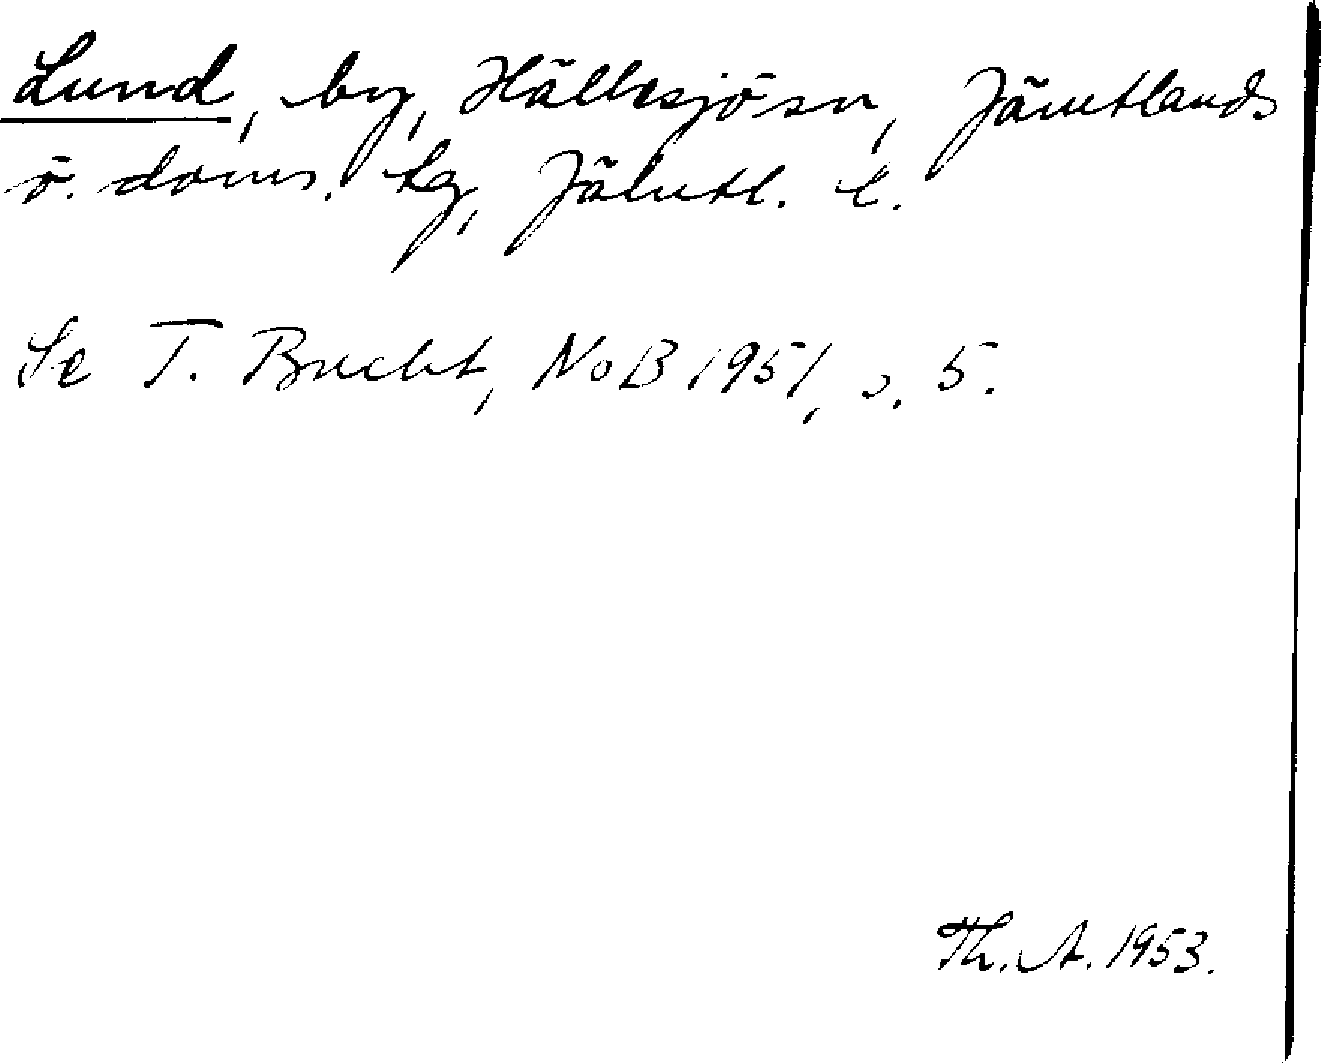 Lund, by, Hällesjö sn, Jämtlands
ö. doms. tg, Jämtl. l.
Se T. Bucht, NoB 1951, s. 5.
Th. A. 1953.